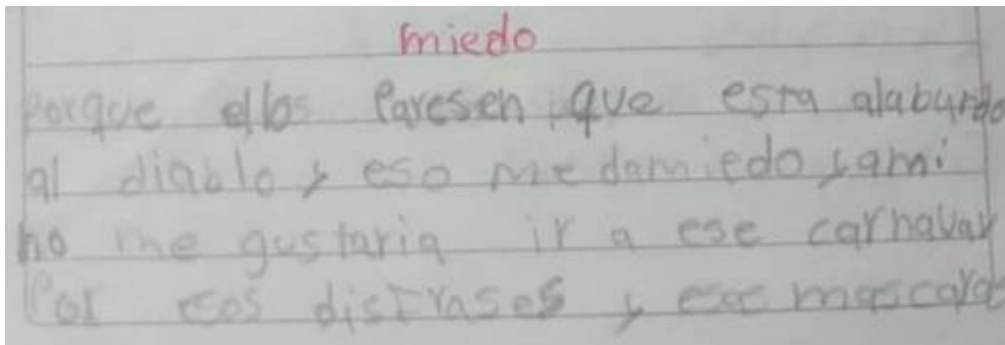 miedo
Porque ellos Paresen que esta alabando
al diablo y eso me da miedo y ami
no me gustaria ir a ese carnaval
Por esos disfrases y esas mascara